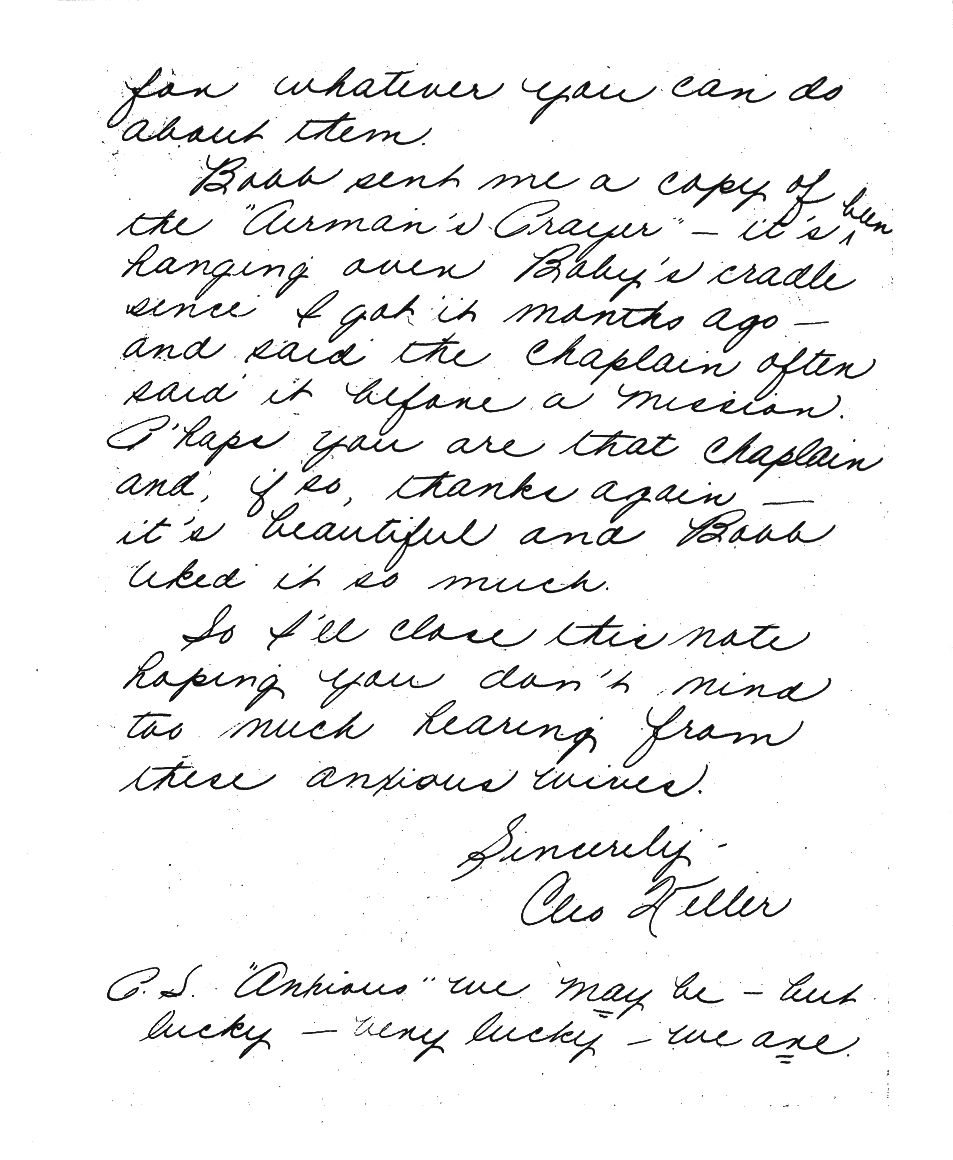 for whatever you can do
about them.
Bobb sent me a copy of
the "Airman's Prayer" – it's been
hanging over Baby's cradle
since I got it months ago –
and said the chaplain often
said it before a mission.
P'haps you are that chaplain
and, if so, thanks again —
it's beautiful and Bobb
liked it so much.
So I'll close this note
hoping you don't mind
too much hearing from
these anxious wives.
Sincerely -
Cleo
P.S. "Anxious" we may be – but
lucky – very lucky – we are.